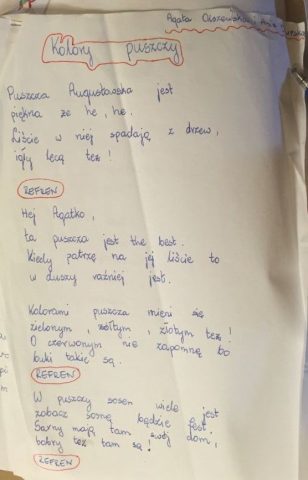 Agata Olszewska i Ania
Kolory puszczy
Puszcza Augustowska jest
piękna że he, he.
Liście w niej spadają z drzew,
igły lecą też!
REFREN
Hej Agatko,
ta puszcza jest the best.
Kiedy patrzę na jej liście to
w duszy raźniej jest.
Kolorami puszcza mieni się
zielonym, żółtym, złotym też!
O czerwonym nie zapomnę to
buki takie są.
REFREN
W puszczy sosen wiele jest
zobacz sosnę będzie fest.
Sarny mają tam swój dom,
bobry też tam są!
REFREN